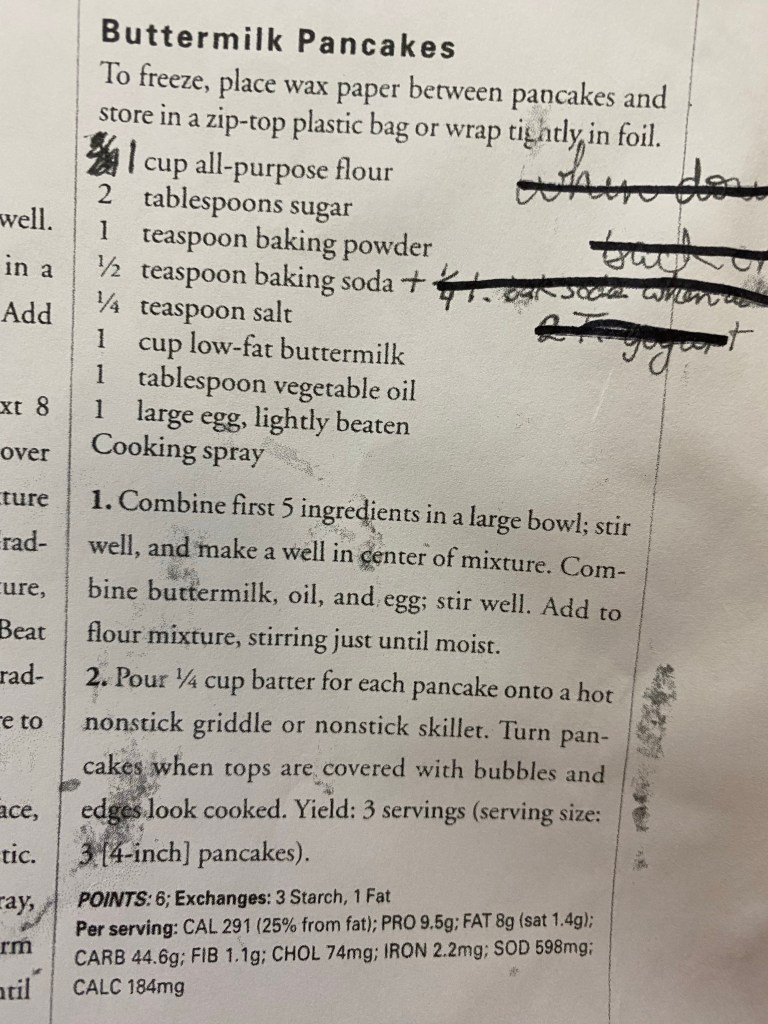 Buttermilk Pancakes
To freeze, place wax paper between pancakes and
store in a zip-top plastic bag or wrap tightly in foil.
1 cup all-purpose flour
when
2 tablespoons sugar
1 teaspoon baking powder
½ teaspoon baking soda + ¼ t. soda when
¼ teaspoon salt
2 T yogurt
1 cup low-fat buttermilk
1 tablespoon vegetable oil
1 large egg, lightly beaten
Cooking spray
1. Combine first 5 ingredients in a large bowl; stir
well, and make a well in center of mixture. Com-
bine buttermilk, oil, and egg; stir well. Add to
flour mixture, stirring just until moist.
2. Pour ¼ cup batter for each pancake onto a hot
nonstick griddle or nonstick skillet. Turn pan-
cakes when tops are covered with bubbles and
edges look cooked. Yield: 3 servings (serving size:
3 [4-inch] pancakes).
POINTS: 6; Exchanges: 3 Starch, 1 Fat
Per serving: CAL 291 (25% from fat); PRO 9.5g; FAT 8g (sat 1.4g);
CARB 44.6g; FIB 1.1g; CHOL 74mg; IRON 2.2mg; SOD 598mg;
CALC 184mg
well.
in a
Add
xt 8
over
ture
rad-
ure,
Beat
rad-
e to
ace,
tic.
ray,
rm
ntil